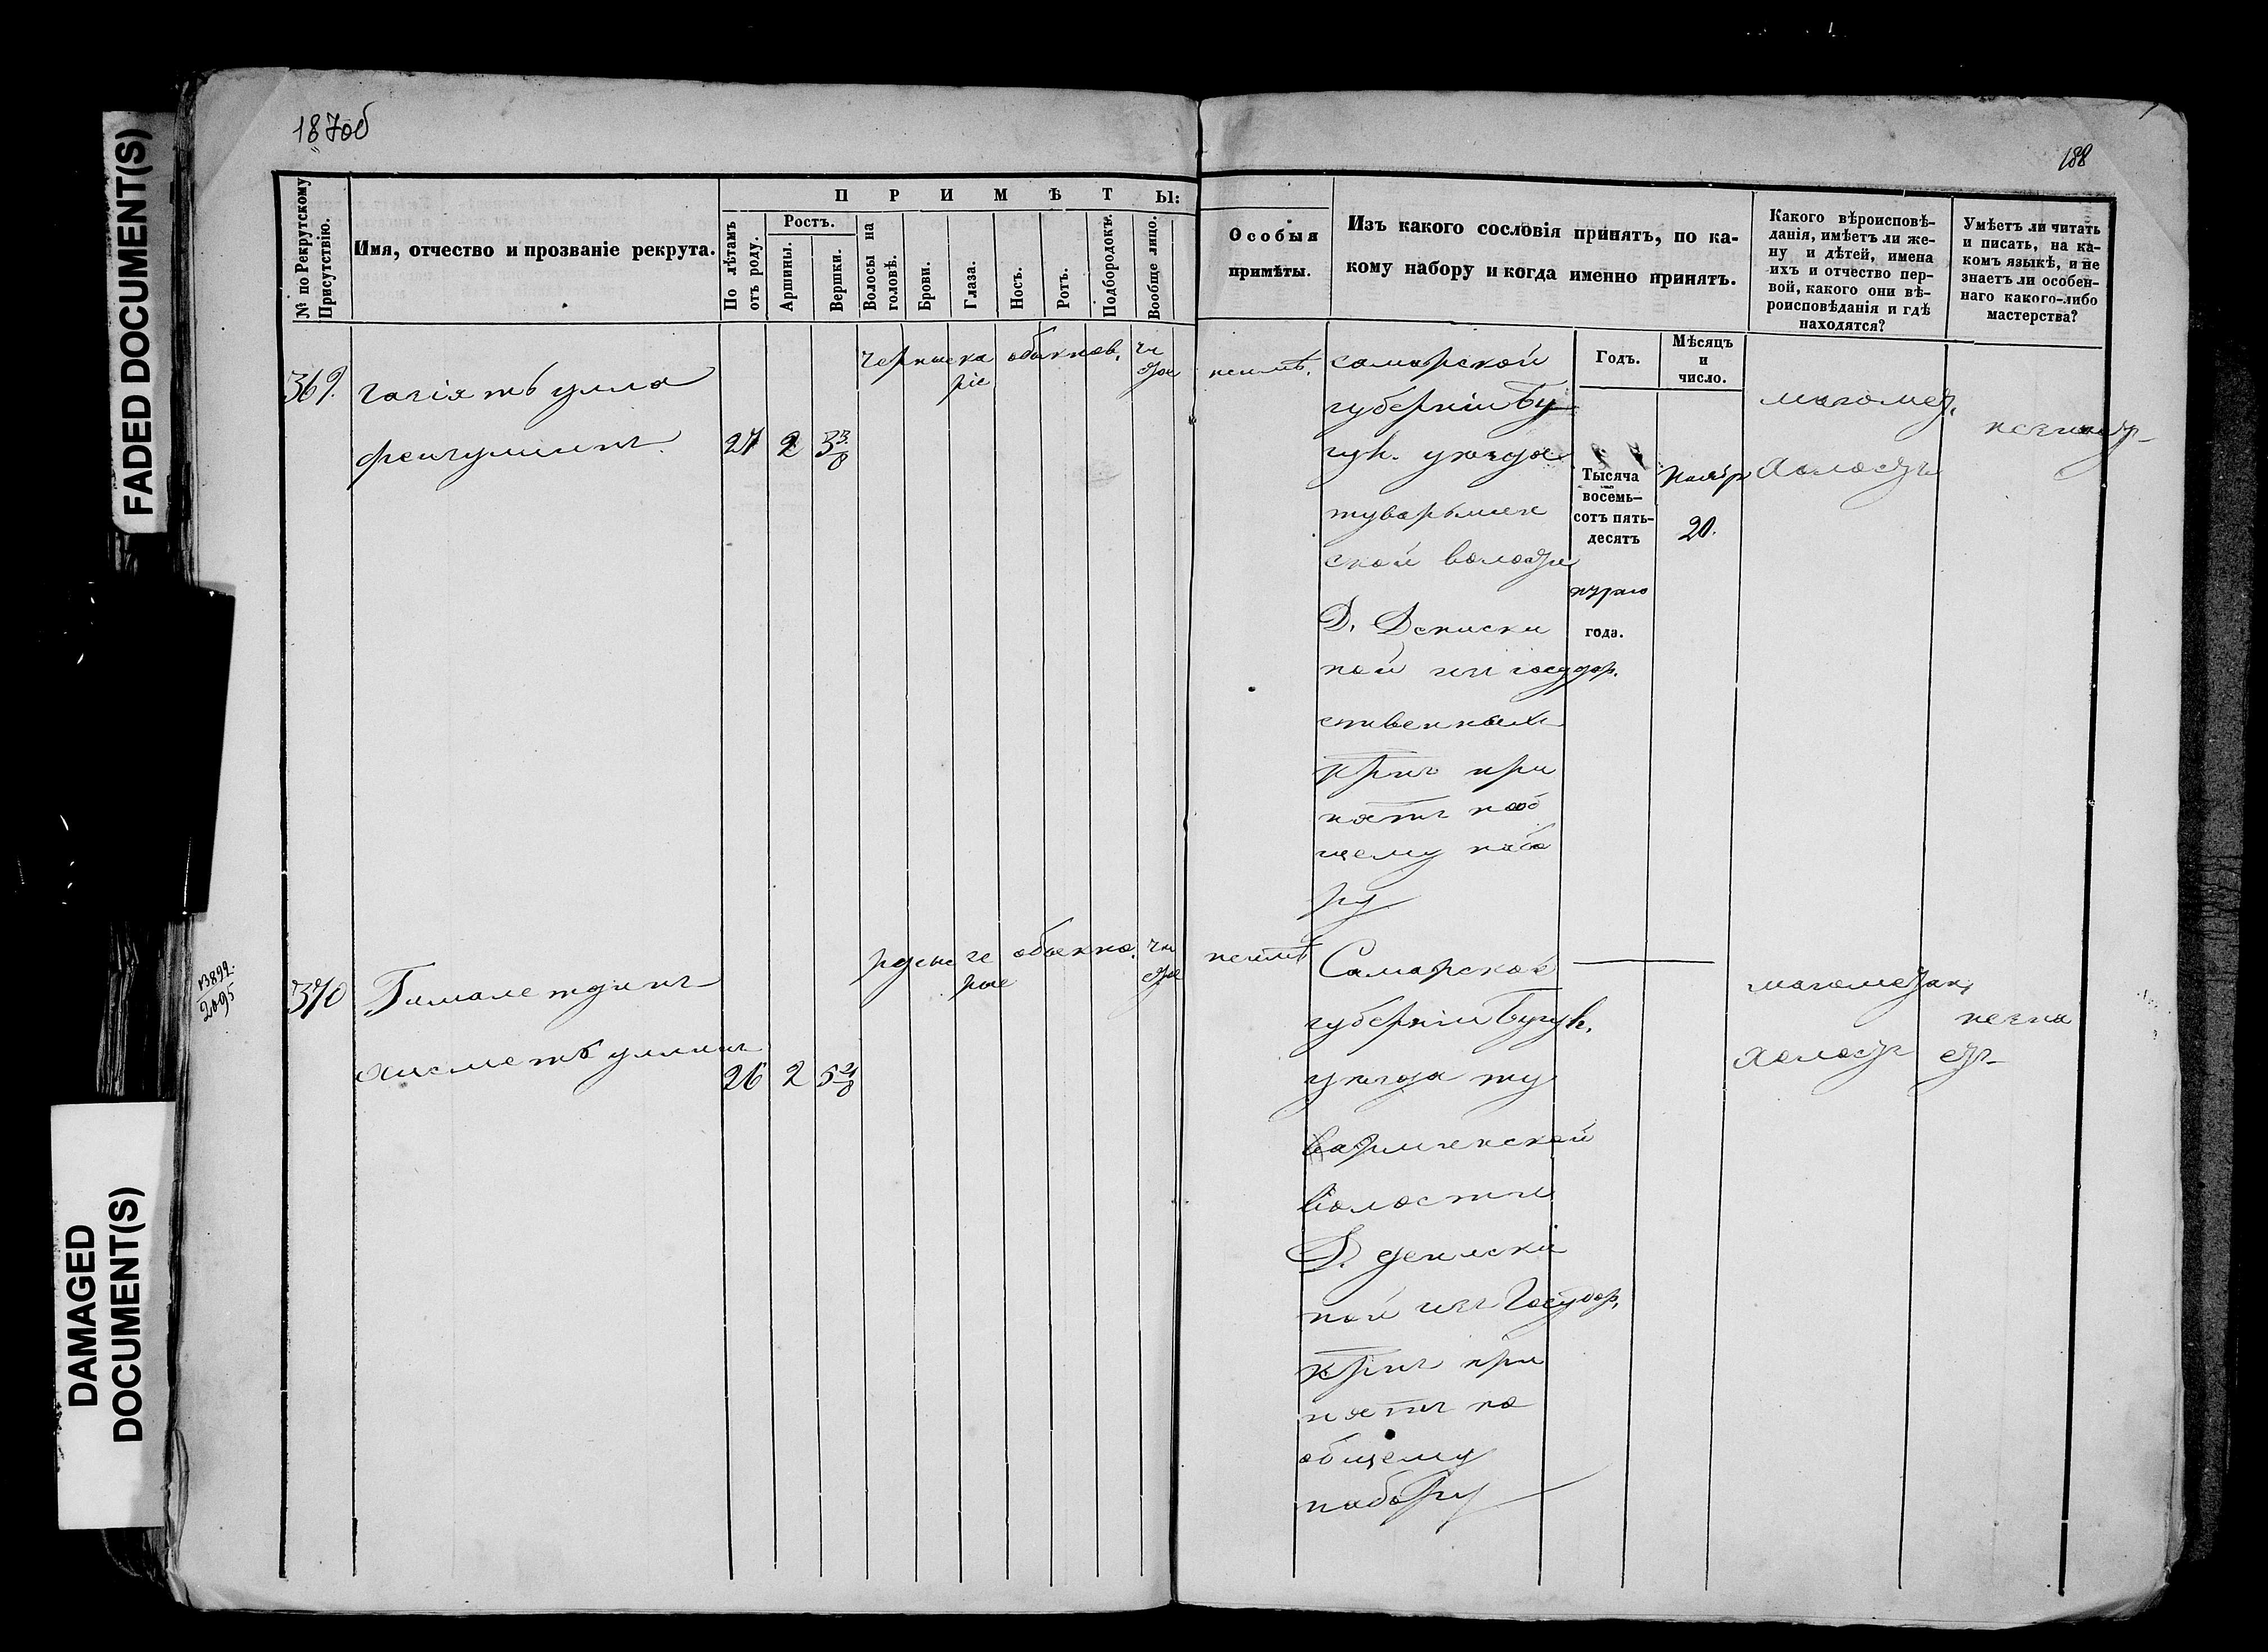 FADED DOCUMENT(S)
DAMAGED
DOCUMENT(S)
187об
188
№ по Рекрутскому
Присутствію.
Имя, отчество и прозваніе рекрута.
ПРИМѢТЫ:
По лѣтамъ
отъ роду.
Ростъ.
Аршины.
Вершки.
Волосы на
головѣ.
Брови.
Глаза.
Носъ.
Ротъ.
Подбородокъ.
Вообще лицо.
Особыя
примѣты.
Изъ какого сословія принятъ, по ка-
кому набору и когда именно принятъ.
Какого вѣроисповѣ-
данія, имѣетъ ли же-
ну и дѣтей, имена
ихъ и отчество пер-
вой, какого они вѣ-
роисповѣданія и гдѣ
находятся?
Умѣетъ ли читать
и писать, на ка-
комъ языкѣ, и не
знаетъ ли особен-
наго какого-либо
мастерства?
Годъ.
Мѣсяцъ
и
число.
369.
гагіятъ улла
27
2
3 3/8
черные
каріе
обыкнов.
чистое
неимѣ.
самарской
губерніи Бу
гул. уезда
туварымен
ской волости
Д. Дениски
ной изъ государ.
ственныхъ
крнъ при
нятъ пооб
щему набо
ру
Тысяча
восемь-
сотъ пять-
десятъ
года.
Ноябр
20.
магомет.
холостъ
незнаетъ
13899.
2095
370
26
2
5 4/8
русые
серые
обыкно.
чистое
неимѣ
Самарской
губерніи Бугул.
уезда ту
варменской
волости
Д. денискі
ной изъ Государ.
крнъ при
нятъ по
общему
набору
магометан,
холостъ
незна
етъ